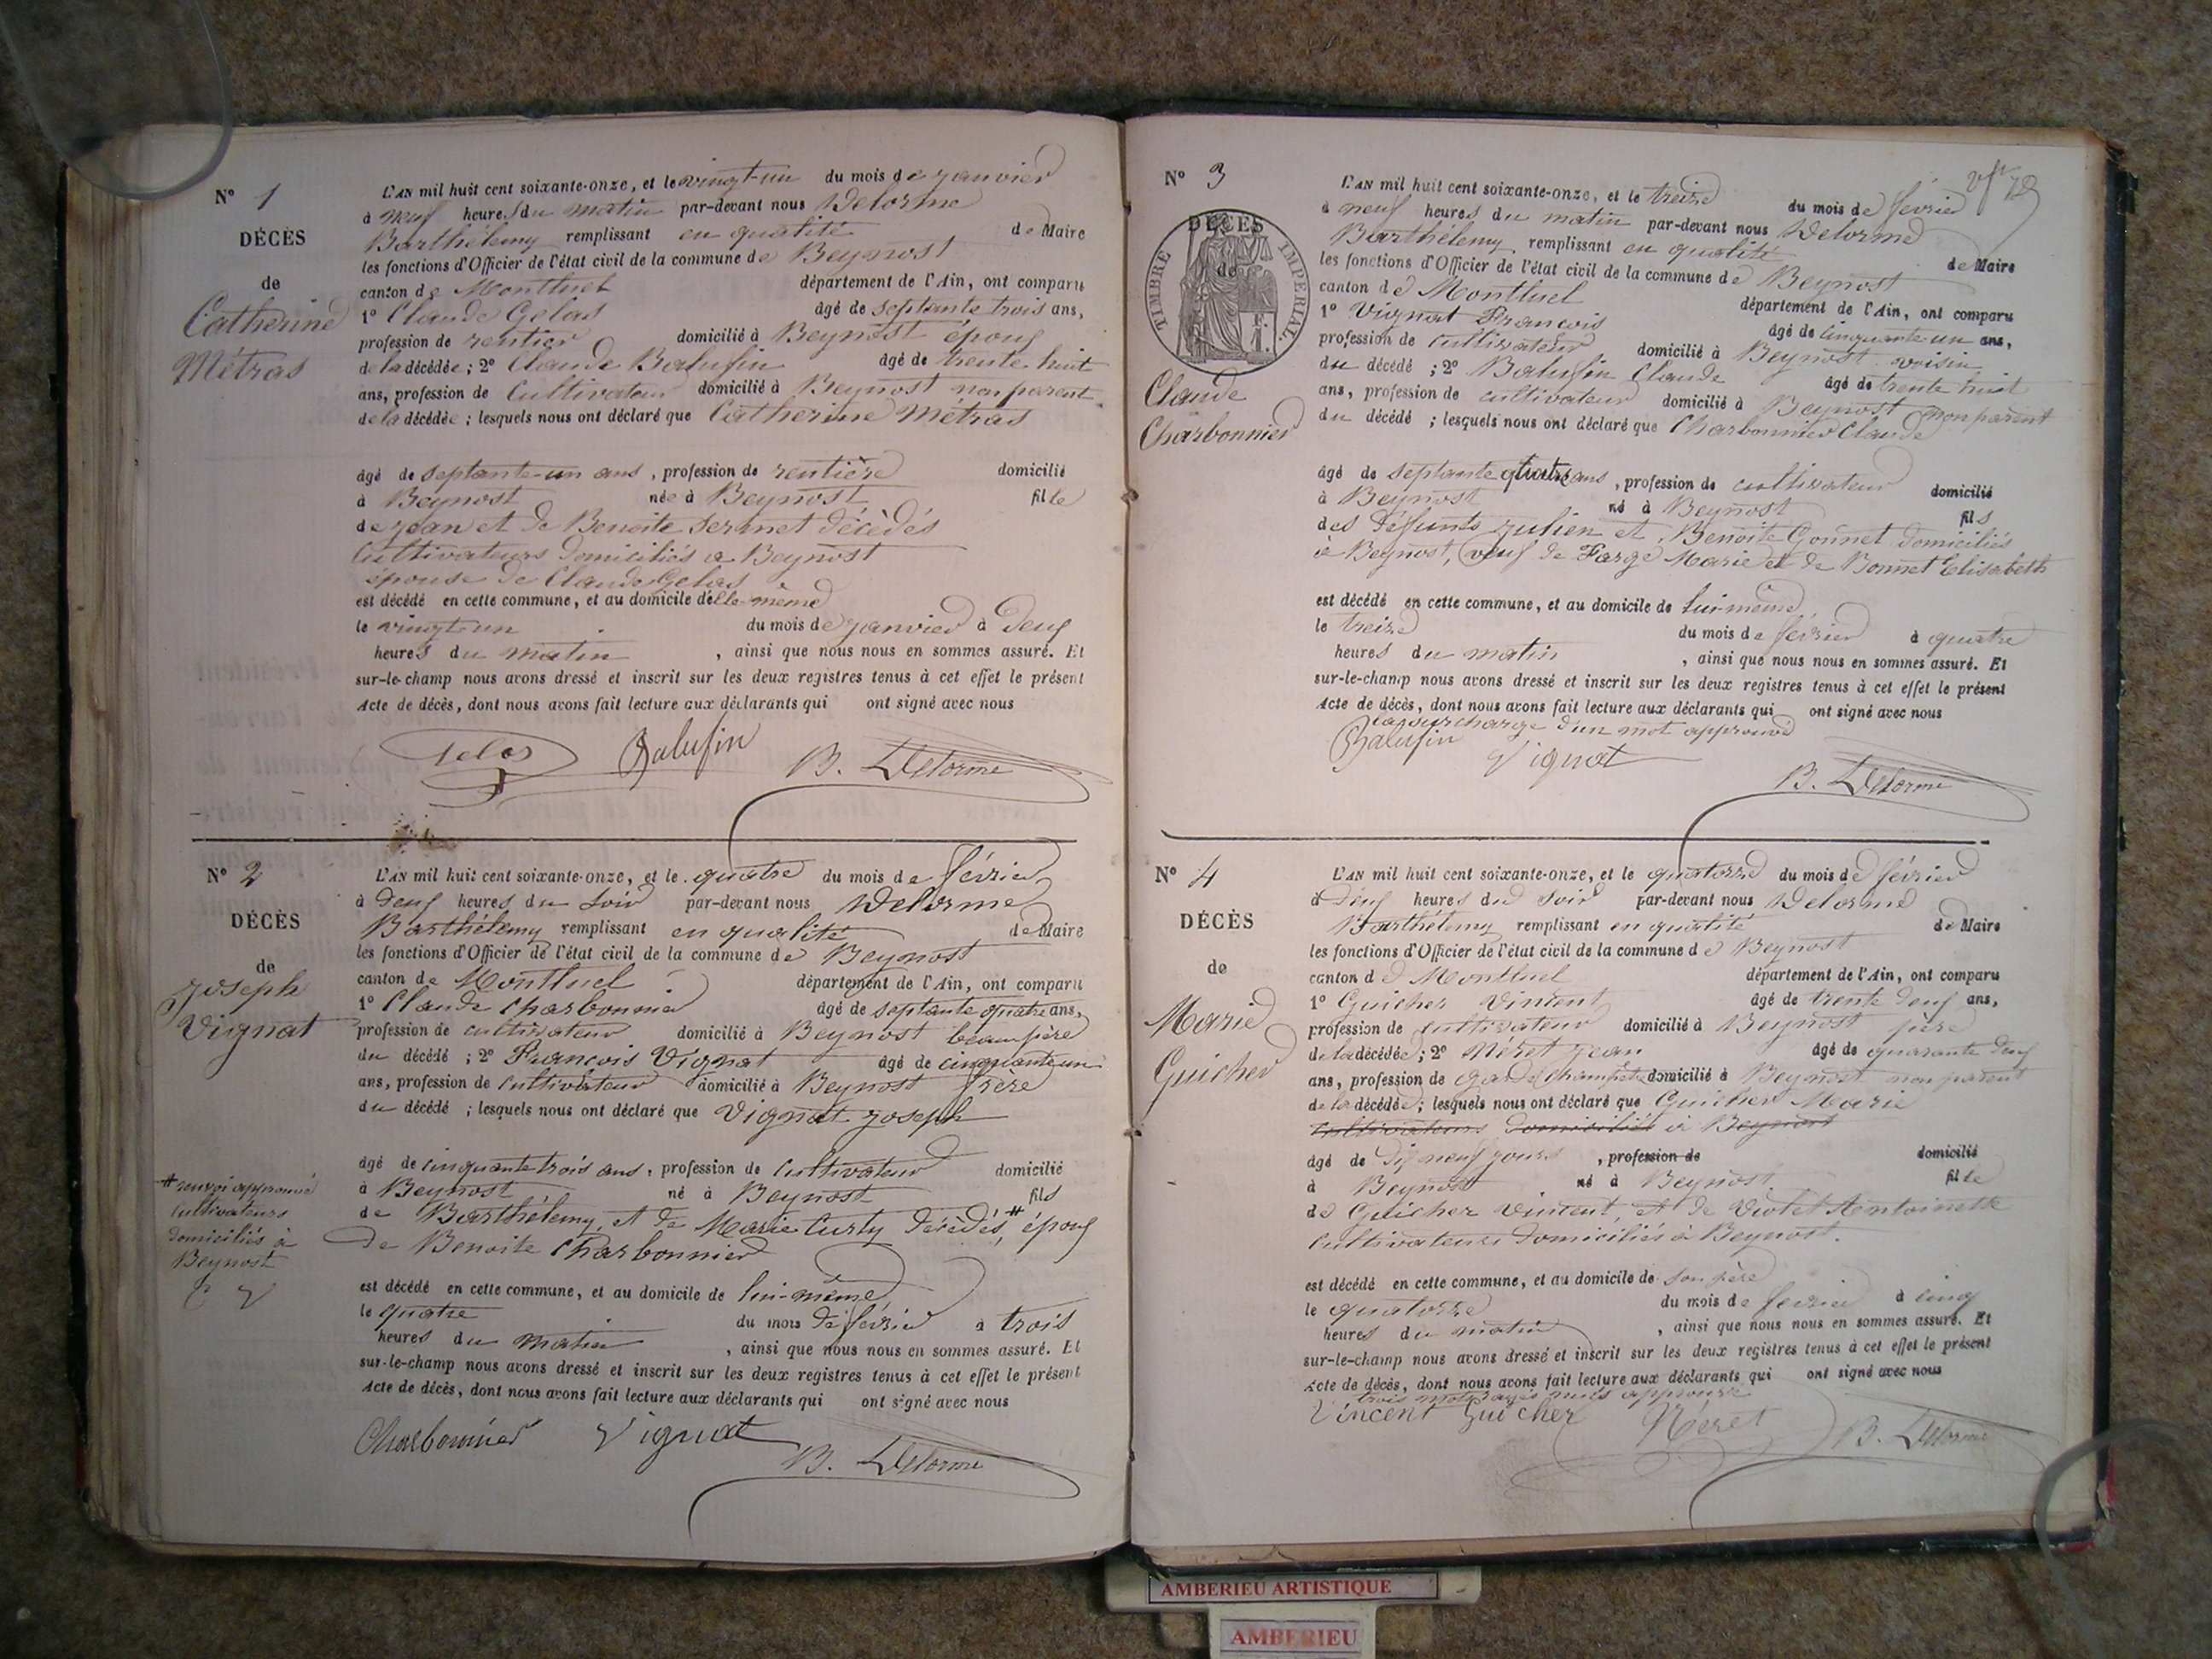 N° 1
DÉCÈS
de
Catherine
Métras
L'AN mil huit cent soixante-onze, et le vingt-un du mois de janvier
à neuf heures du matin par-devant nous Delorme
Barthélemy remplissant en qualité de Maire
les fonctions d'Officier de l'état civil de la commune de Beynost
canton de Montluel département de l'Ain, ont comparu
1° Claude Gelas âgé de septante trois ans,
profession de rentier domicilié à Beynost époux
de la décédée; 2° Claude Balufin âgé de trente huit
ans, profession de Cultivateur domicilié à Beynost non parent
de la décédée; lesquels nous ont déclaré que Catherine Métras
âgé de septante-un ans, profession de rentière domicilié
à Beynost née à Beynost fille
de jean et de Benoite Sermet décèdés
Cultivateurs domiciliés à Beynost
épouse de Claude Gelas
est décédé en cette commune, et au domicile d'elle-même
le vingt-un du mois de janvier à deux
heures du matin, ainsi que nous nous en sommes assuré. Et
sur-le-champ nous avons dressé et inscrit sur les deux registres tenus à cet effet le présent
Acte de décès, dont nous avons fait lecture aux déclarants qui ont signé avec nous
Gelas Balufin B. Delorme
N° 2
DÉCÈS
de
joseph
Vignat
L'AN mil huit cent soixante-onze, et le quatre du mois de février
à deux heures du soir par-devant nous Delorme
Barthélemy remplissant en qualité de Maire
les fonctions d'Officier de l'état civil de la commune de Beynost
canton de Montluel département de l'Ain, ont comparu
1° Claude Charbonnier âgé de septante quatre ans,
profession de cultivateur domicilié à Beynost beau père
du décédé; 2° François Vignat âgé de cinquante un
ans, profession de Cultivateur domicilié à Beynost frère
du décédé; lesquels nous ont déclaré que Vignat joseph
âgé de cinquante trois ans, profession de Cultivateur domicilié
à Beynost né à Beynost fils
de Barthélemy, et de Marie Curty décèdés,# époux
de Benoite Charbonnier
# renvoi approuvé
Cultivateurs
domiciliés à
Beynost
C V
est décédé en cette commune, et au domicile de lui-même
le quatre du mois de février à trois
heures du matin, ainsi que nous nous en sommes assuré. Et
sur-le-champ nous avons dressé et inscrit sur les deux registres tenus à cet effet le présent
Acte de décès, dont nous avons fait lecture aux déclarants qui ont signé avec nous
Charbonnier Vignat B. Delorme
N° 3
DÉCÈS
de
TIMBRE IMPERIAL.
Claude
Charbonnier
L'AN mil huit cent soixante-onze, et le treize du mois de février
à neuf heures du matin par-devant nous Delorme
Barthélemy remplissant en qualité de Maire
les fonctions d'Officier de l'état civil de la commune de Beynost
canton de Montluel département de l'Ain, ont comparu
1° Vignat François âgé de cinquante un ans,
profession de cultivateur domicilié à Beynost voisin
du décédé; 2° Balufin Claude âgé de trente huit
ans, profession de cultivateur domicilié à Beynost non parent
du décédé; lesquels nous ont déclaré que Charbonnier Claude
âgé de septante quatre ans, profession de cultivateur domicilié
à Beynost né à Beynost fils
des défunts julien et Benoite Gonnet domiciliés
à Beynost, veuf de Farge Marie et de Bonnet Elisabeth
est décédé en cette commune, et au domicile de lui-même
le treize du mois de février à quatre
heures du matin, ainsi que nous nous en sommes assuré. Et
sur-le-champ nous avons dressé et inscrit sur les deux registres tenus à cet effet le présent
Acte de décès, dont nous avons fait lecture aux déclarants qui ont signé avec nous
la surcharge d'un mot approuvé
Balufin Vignat B. Delorme
N° 4
DÉCÈS
de
Marie
Guicher
L'AN mil huit cent soixante-onze, et le quatorze du mois de février
à deux heures du soir par-devant nous Delorme
Barthélemy remplissant en qualité de Maire
les fonctions d'Officier de l'état civil de la commune de Beynost
canton de Montluel département de l'Ain, ont comparu
1° Guicher Vincent âgé de trente deux ans,
profession de cultivateur domicilié à Beynost père
de la décédée; 2° Néret jean âgé de quarante deux
ans, profession de garde champêtre domicilié à Beynost non parent
de la décédée; lesquels nous ont déclaré que Guicher Marie
cultivateurs domiciliés à Beynost
âgé de dix neuf jours, profession de domicilié
à Beynost né à Beynost fille
de Guicher Vincent, et de Violet Antoinette
Cultivateurs domiciliés à Beynost.
est décédé en cette commune, et au domicile de son père
le quatorze du mois de février à cinq
heures du matin, ainsi que nous nous en sommes assuré. Et
sur-le-champ nous avons dressé et inscrit sur les deux registres tenus à cet effet le présent
Acte de décès, dont nous avons fait lecture aux déclarants qui ont signé avec nous
trois mots rayés nuls approuvé
Vincent Guicher Néret B. Delorme
AMBERIEU ARTISTIQUE
AMBERIEU